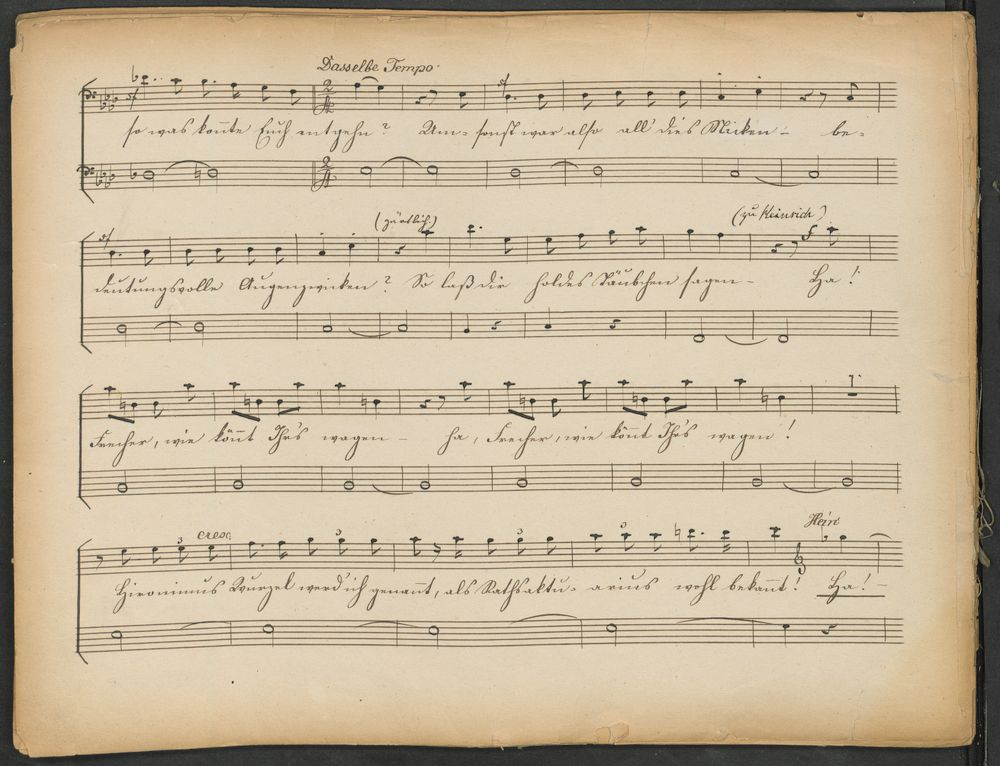 Dasselbe Tempo.
so was konnte Euch entgehn? Um- sonst war also all' dies Nicken - be-
(zärtlich:) (zu Heinrich)
deutungsvolle Augenzwicken? So laß dir holdes Täubchen sagen - Ha!
Frecher, wie könnt Ihr's wagen - ha, Frecher, wie könnt Ihr's wagen!
cresc. Hein
Hieronimus Wurzel werd' ich genannt, als Rathsaktu- arius wohl bekannt! Ha! -